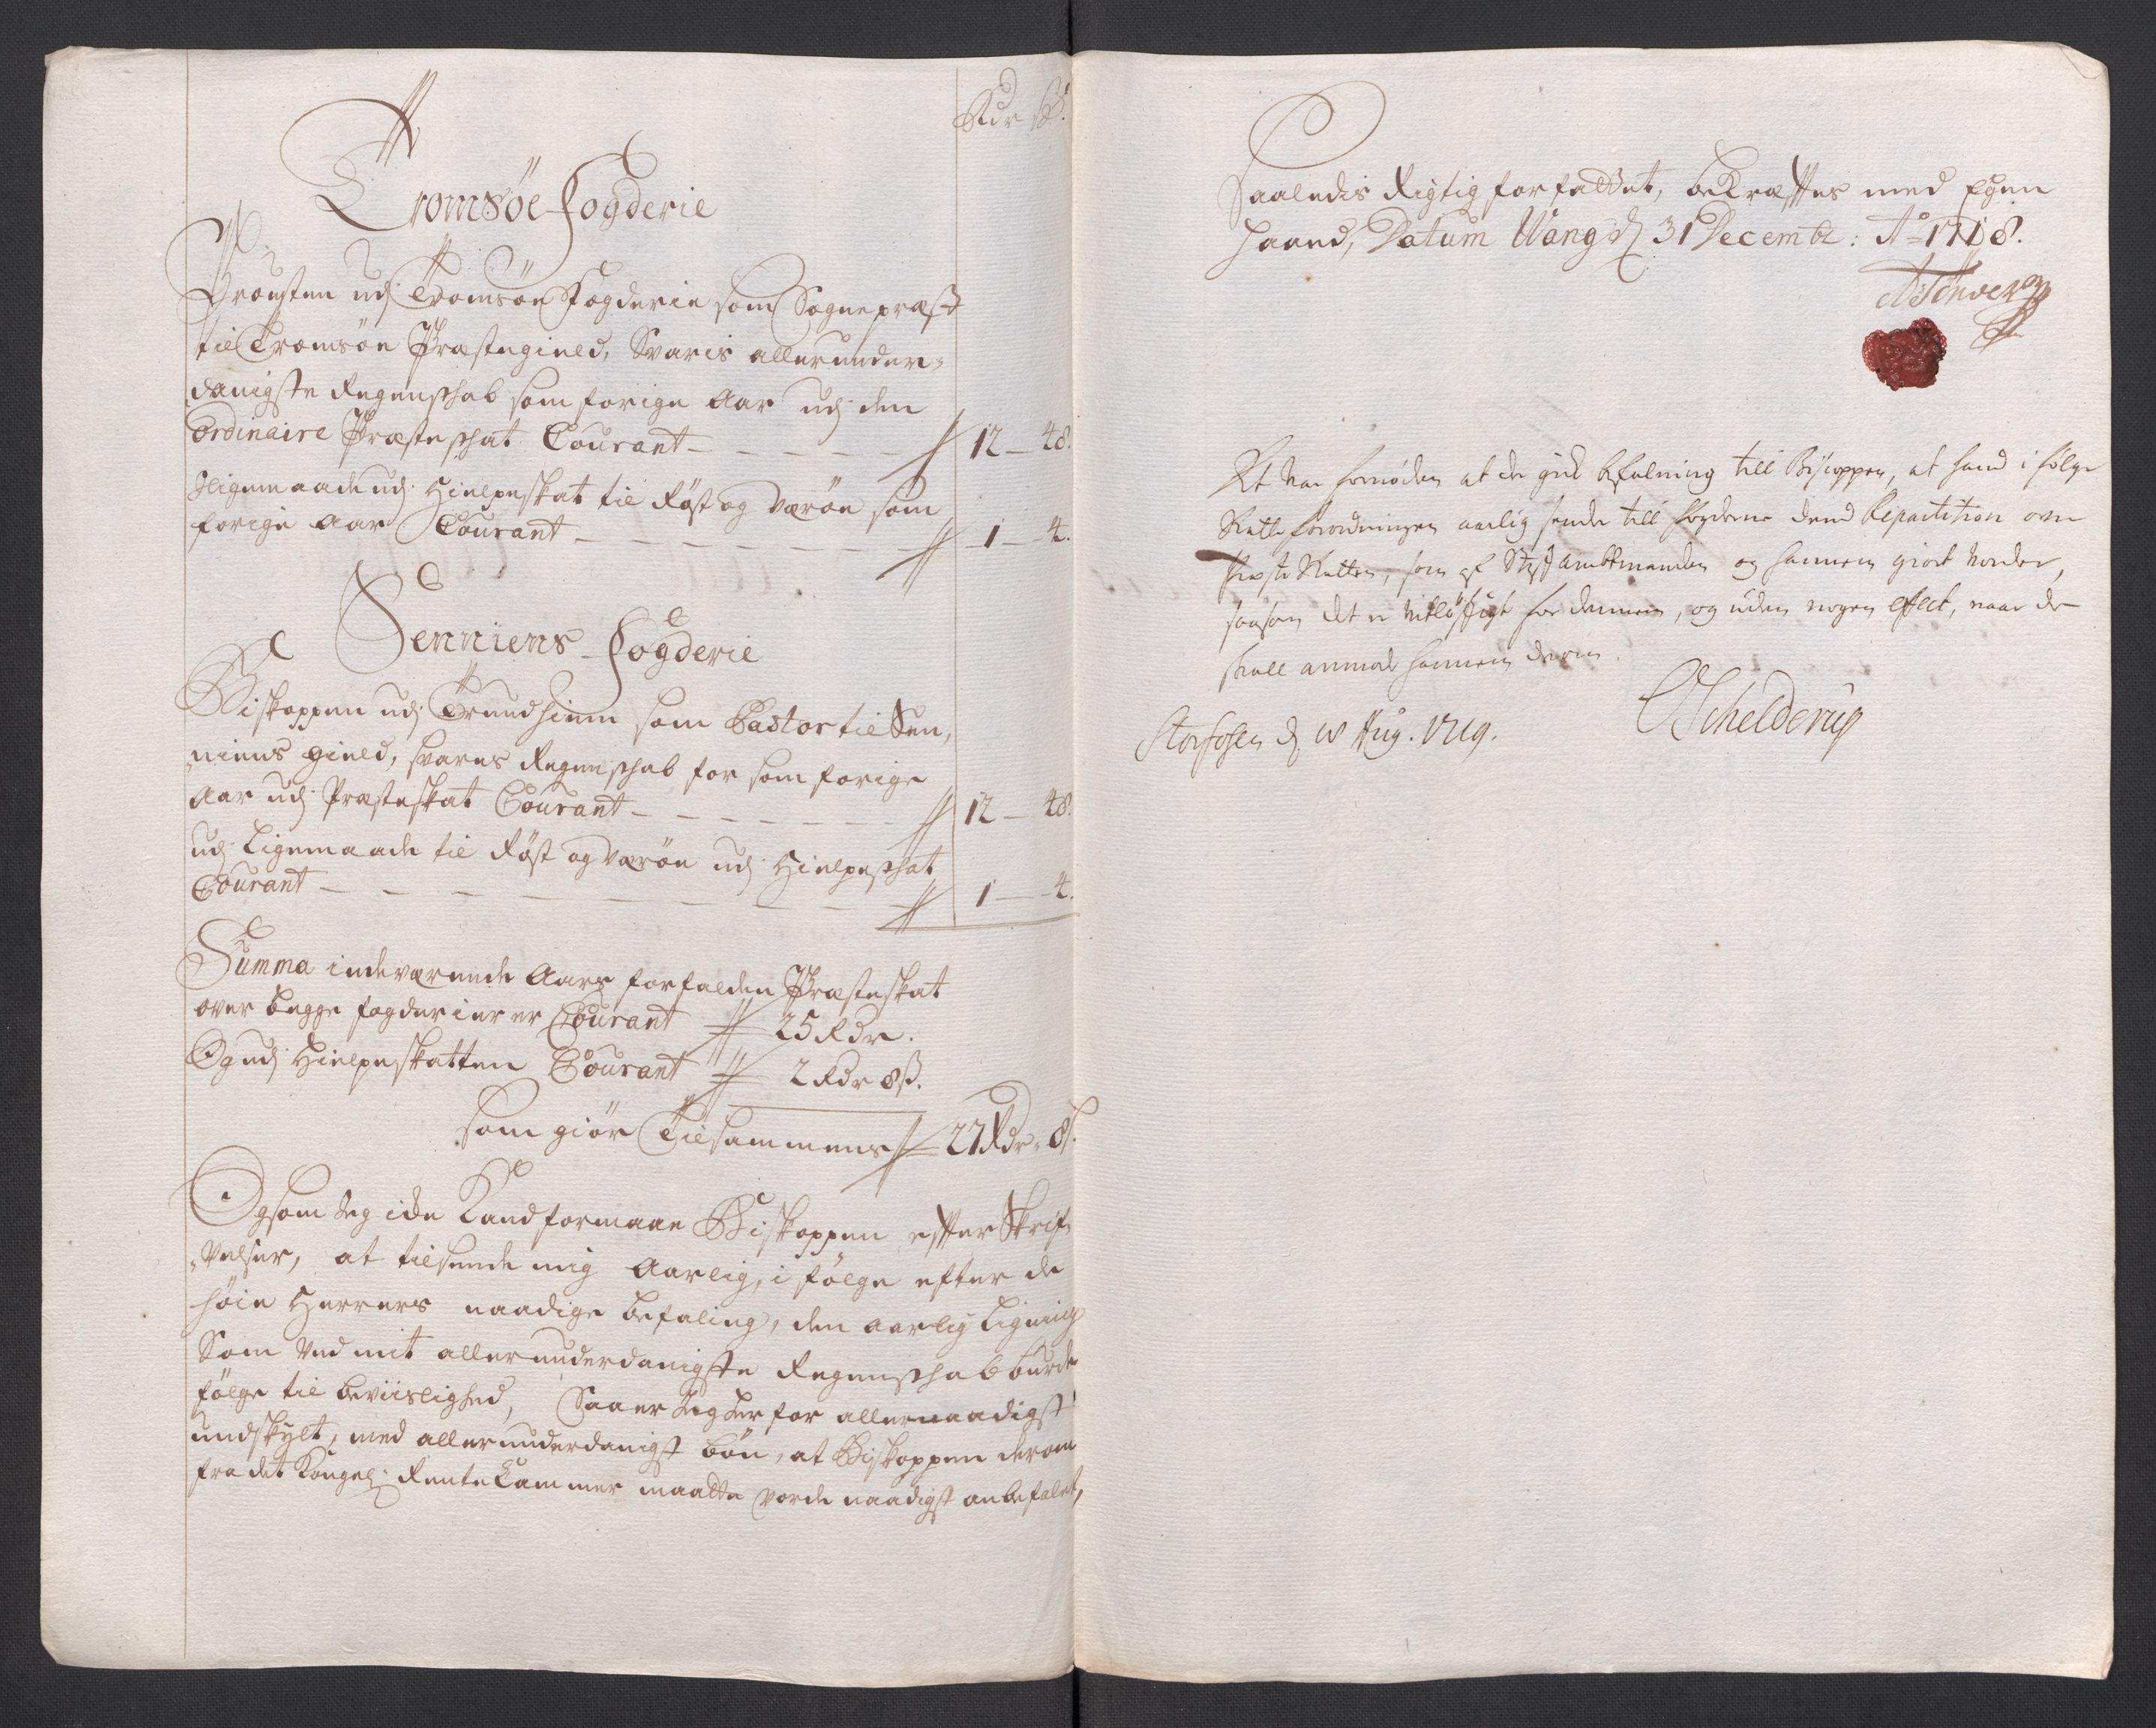 Rdr ß.
Tromsöe fogderie
Prousten udj Tromsöe Fogderie som Sognepræst
til Tromsöe Præstegield, Svaris allerunder-
danigste Regenschab som forige Aar udj den
Ordinaire Præsteschat Courant - - - - - 12 - 48.
Ligemaade udj Hielpeskat til Röst og Værön som
forige Aar Courant - - - - - - - 1 - 4.
Senniens fogderie
Biskoppen udj Trundhiem som Pastor til Sen,
niens gield, svares Regenschab for som forige
Aar udj Præsteskat Courant - - - - - - 12 - 48.
udj Ligemaade til Röst og Værön udj Hielpeschat
Courant - - - - - - - - - 1 - 4.
Summa indeværende Aars forfalden Præsteskat
over begge fogderier er Courant 25 Rdr.
Og udj Hielpeskatten Courant 2 Rdr 8 ß.
som giör Tilsammens 27 Rdr 8
Og som Jeg icke Kand formaae Biskoppen efter Skrif-
velser, at tilsende mig Aarlig, i fölge efter de
höie Herrers naadige befaling, den aarlig Ligning
Som ved mit allerunderdanigste Regenschab burde
fölge til beviislighed, Saa er Jeg her for allernaadigst
undskylt, med allerunderdanigst bön, at Biskoppen derom
fra det Kongel: Rente Cammer maatte vorde naadigst anbefalet,
Saaledis Rigtig forfattet, bekræftes med Egen
haand, Datum Wang d 31 Decembr: Ao 1718.
Et var fornöden at der gick befalning till Biscoppen, at hand i fölge
Skatte forordningen aarlig sender till fogderne dend Repartition over
Præste Skatten, som af Stiftambtmanden og hannem giort vorder,
saasom det er vitlöftigt for dennem, og uden nogen effect, naar de
skall anmode hannem derom.
Storfosen d 10 Aug. 1719.
Schelderup